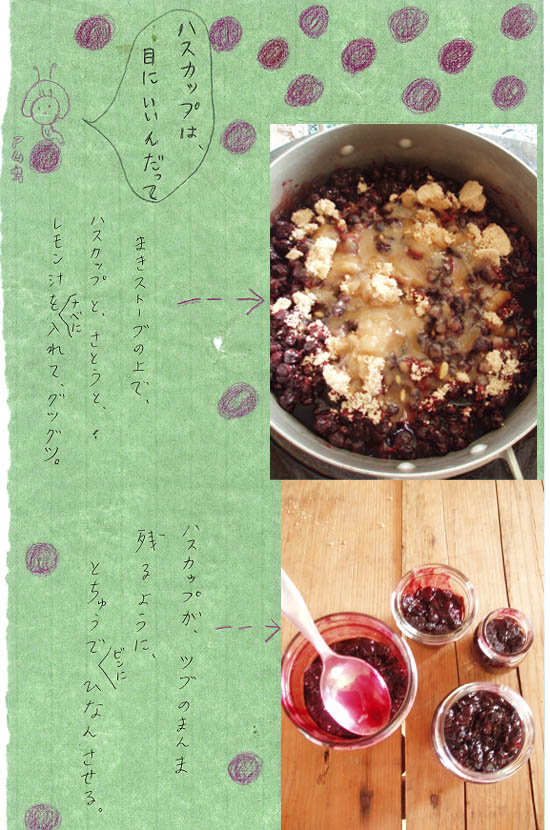 ハスカップは、
目にいいんだって
まきストーブの上で、
ハスカップと、さとうと、
レモン汁をナベに入れて、グツグツ。
ハスカップが、ツブのまんま
残るように、
とちゅうでビンにひなんさせる。